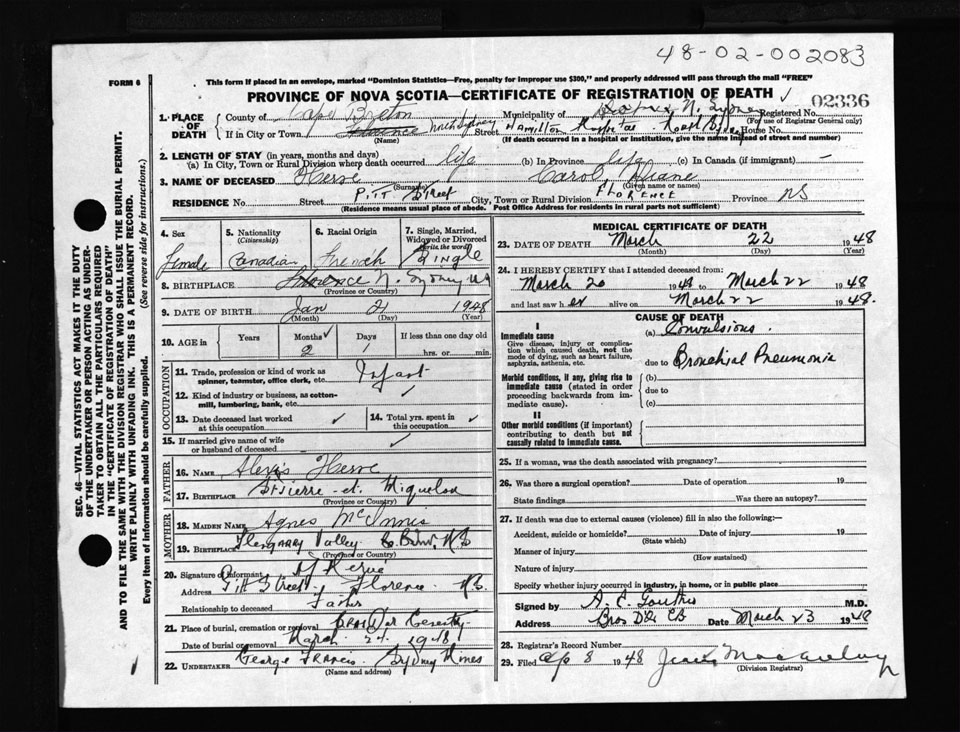 48-02-002083
FORM 6
This form if placed in an envelope, marked "Dominion Statistics—Free, penalty for improper use $300," and properly addressed will pass through the mail "FREE"
PROVINCE OF NOVA SCOTIA—CERTIFICATE OF REGISTRATION OF DEATH
02336
1. PLACE OF DEATH
County of Cape Breton
Municipality of N. Sydney
Registered No.
(For use of Registrar General only)
If in City or Town Florence North Sydney Street Hamilton Hospital House No.
(Name)
(If death occurred in a hospital or institution, give the name instead of street and number)
2. LENGTH OF STAY (in years, months and days)
(a) In City, Town or Rural Division where death occurred life (b) In Province life (c) In Canada (if immigrant) —
3. NAME OF DECEASED Herve Carol Diane
(Surname) (Given name or names)
RESIDENCE No. Street Pitt Street City, Town or Rural Division Florence Province NS
(Residence means usual place of abode. Post Office Address for residents in rural parts not sufficient)
4. Sex
Female
5. Nationality
(Citizenship)
Canadian
6. Racial Origin
French
7. Single, Married, Widowed or Divorced
(Write the word)
Single
8. BIRTHPLACE Florence N. Sydney NS
(Province or Country)
9. DATE OF BIRTH Jan 21 1948
(Month) (Day) (Year)
10. AGE in
Years Months Days If less than one day old
2 1 hrs. or min.
OCCUPATION
11. Trade, profession or kind of work as spinner, teamster, office clerk, etc. Infant
12. Kind of industry or business, as cotton-mill, lumbering, bank, etc.
13. Date deceased last worked at this occupation
14. Total yrs. spent in this occupation
15. If married give name of wife or husband of deceased
FATHER
16. NAME Alexis Herve
17. BIRTHPLACE St Pierre et Miquelon
(Province or Country)
MOTHER
18. MAIDEN NAME Agnes McInnis
19. BIRTHPLACE Glengarry Valley C. Breton, NS
(Province or Country)
20. Signature of informant A Herve
Address Pitt Street Florence NS
Relationship to deceased Father
21. Place of burial, cremation or removal Bras D'or Cemetery
Date of burial or removal March 24 1948
22. UNDERTAKER George Francis Sydney Mines
(Name and address)
MEDICAL CERTIFICATE OF DEATH
23. DATE OF DEATH March 22 1948
(Month) (Day) (Year)
24. I HEREBY CERTIFY that I attended deceased from:
March 20 1948 to March 22 1948
and last saw her alive on March 22 1948.
CAUSE OF DEATH
I
Immediate cause
Give disease, injury or complication which caused death, not the mode of dying, such as heart failure, asphyxia, asthenia, etc.
(a) Convulsions.
due to Bronchial Pneumonia
Morbid conditions, if any, giving rise to immediate cause (stated in order proceeding backwards from immediate cause).
(b)
due to
(c)
II
Other morbid conditions (if important) contributing to death but not causally related to immediate cause.
25. If a woman, was the death associated with pregnancy?
26. Was there a surgical operation? Date of operation 19
State findings Was there an autopsy?
27. If death was due to external causes (violence) fill in also the following:—
Accident, suicide or homicide? Date of injury 19
(State which)
Manner of injury
(How sustained)
Nature of injury
Specify whether injury occurred in industry, in home, or in public place
Signed by M.D.
Address Bras D'Or CB Date March 23 1948
28. Registrar's Record Number
29. Filed Ap 8 1948
(Division Registrar)
SEC. 46—VITAL STATISTICS ACT MAKES IT THE DUTY
OF THE UNDERTAKER OR PERSON ACTING AS UNDERTAKER TO OBTAIN ALL THE PARTICULARS REQUIRED
IN THE "CERTIFICATE OF REGISTRATION OF DEATH"
AND TO FILE THE SAME WITH THE DIVISION REGISTRAR WHO SHALL ISSUE THE BURIAL PERMIT.
WRITE PLAINLY WITH UNFADING INK. THIS IS A PERMANENT RECORD.
Every item of information should be carefully supplied. (See reverse side for instructions.)